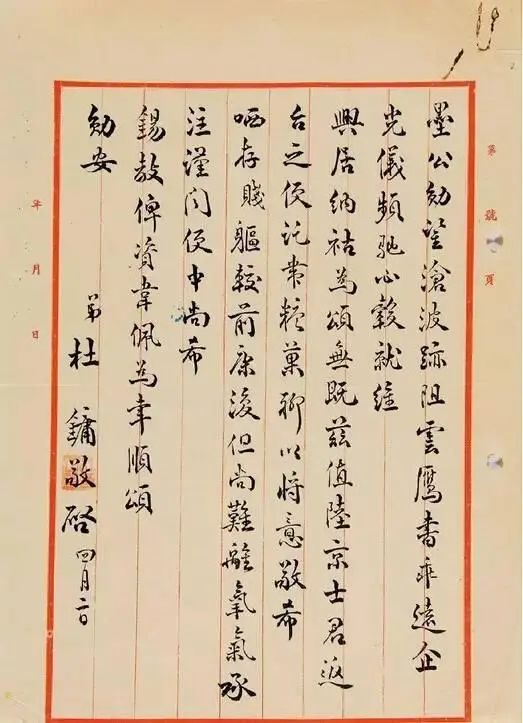 墨公勛鑒滄波跡阻雲鴈書乖遠企
光儀頻馳心轂就維
興居納祜為頌無既茲值陸京士君返
台之便託帶糕菓聊以將意敬希
哂存賤軀較前康復但尚難離氧氣承
注謹聞便中尚希
錫教俾資韋佩為幸順頌
勛安
弟 杜鏞敬啓 四月二日
第 號 頁
年 月 日